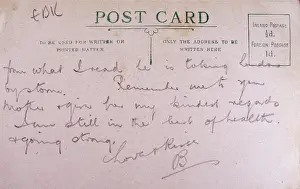 EDK
POST CARD
TO BE USED FOR WRITTEN OR
PRINTED MATTER
ONLY THE ADDRESS TO BE
WRITTEN HERE
INLAND POSTAGE
½d.
FOREIGN POSTAGE
1d.
from what I read he is taking London
by storm. Remember me to your
mother & give her my kindest regards
I am still in the best of health
& going strong.
Love & Kisses
B